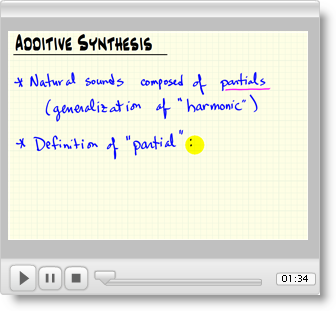 ADDITIVE SYNTHESIS
* Natural sounds composed of partials
(generalization of "harmonic")
* Definition of "partial" :
01:34